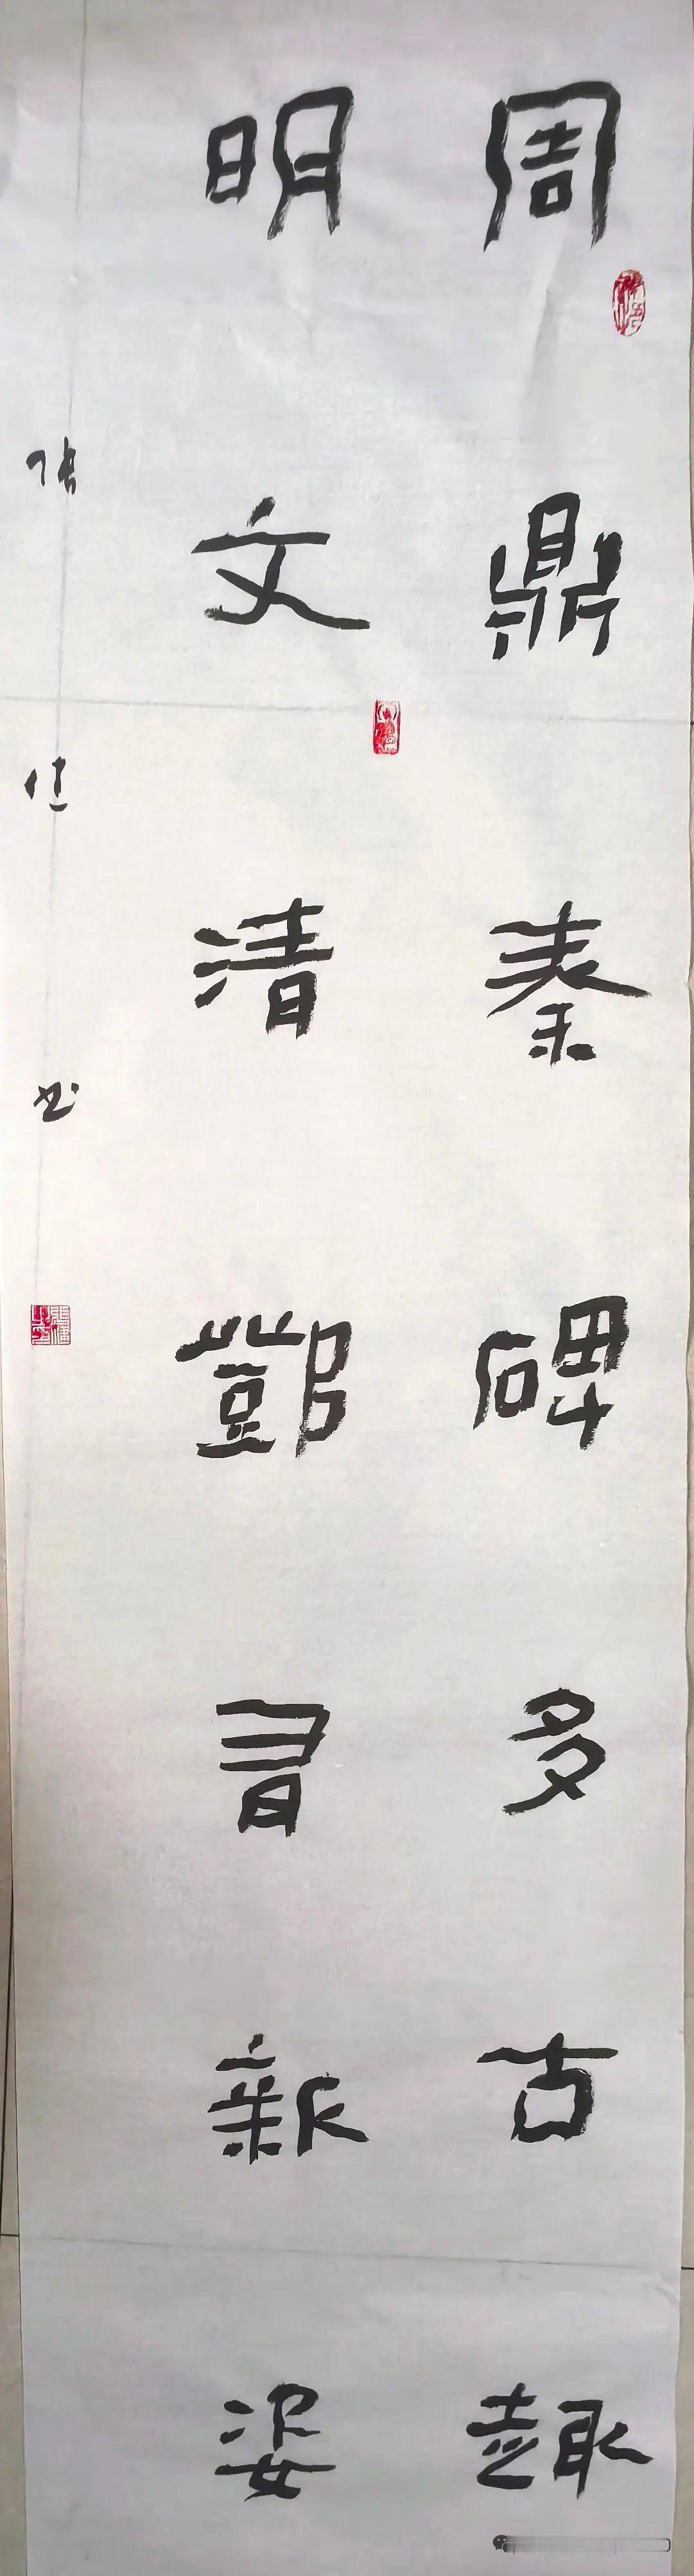 周鼎秦碑多古趣
明文清鄧有新姿
张 书